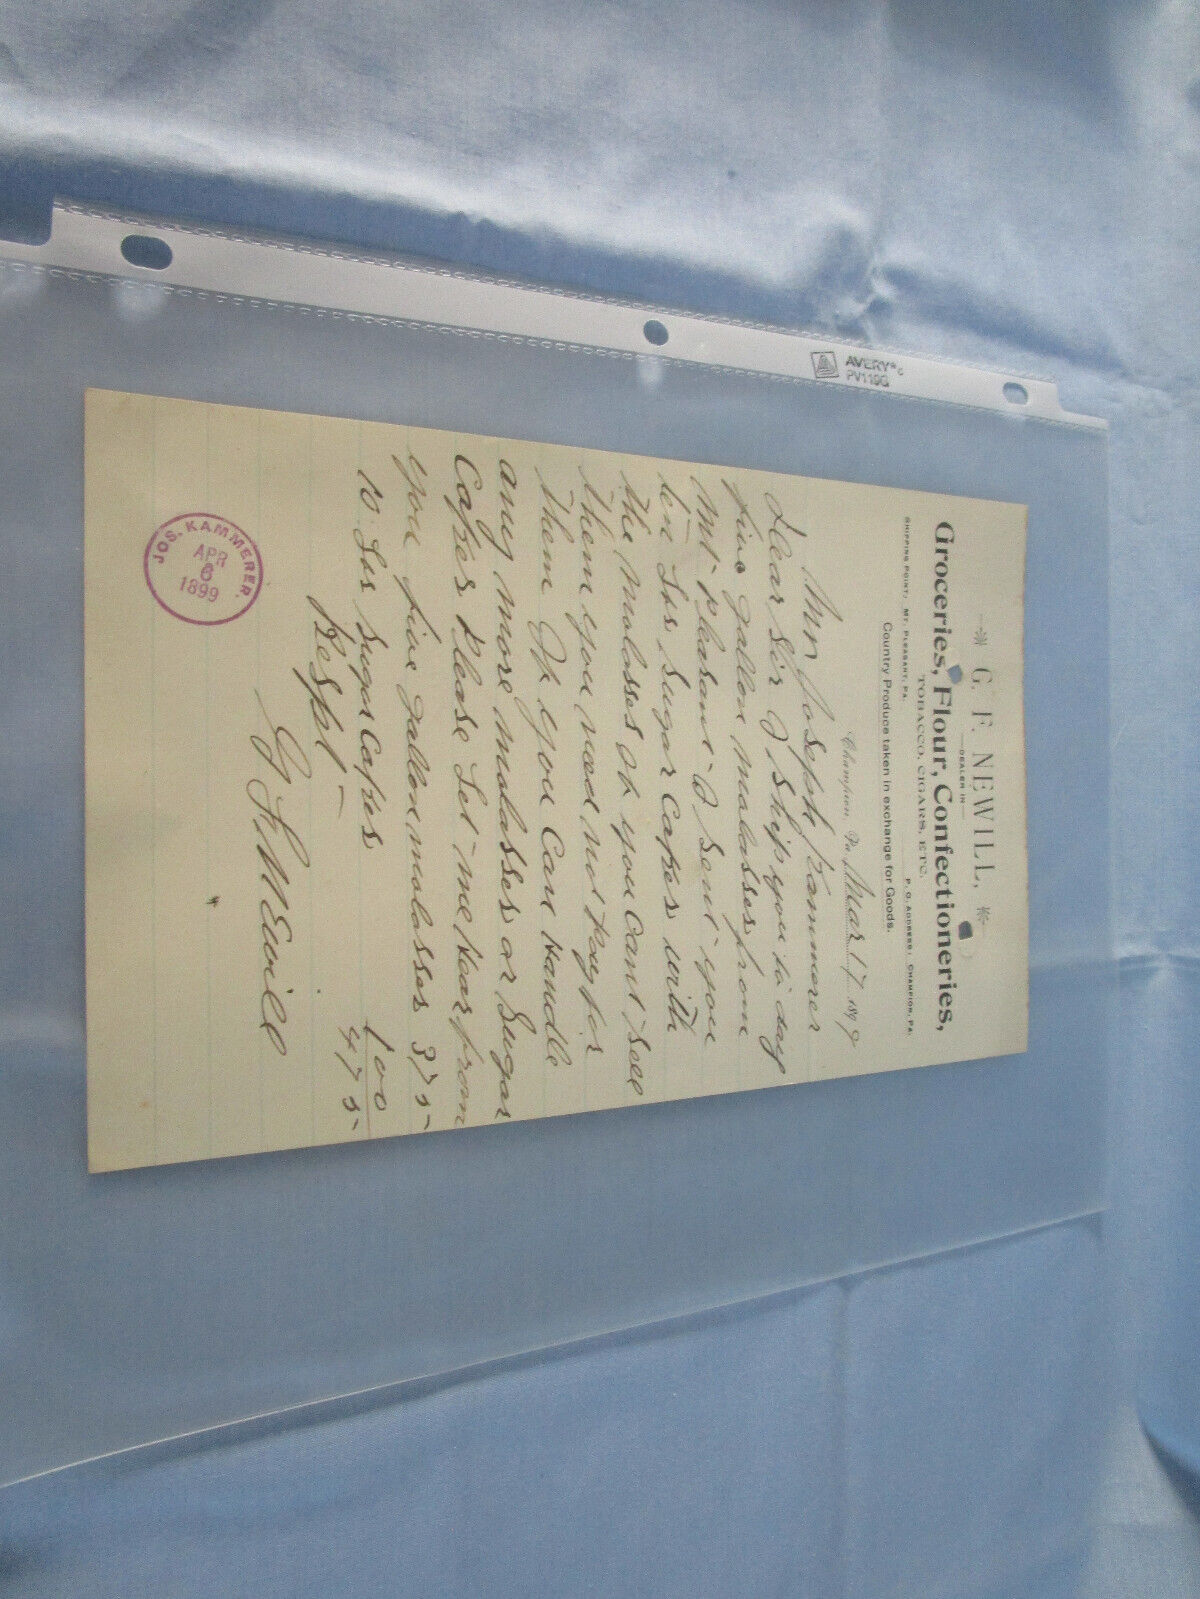 G. F. NEWILL,
DEALER IN
Groceries, Flour, Confectioneries,
TOBACCO, CIGARS, ETC.
SHIPPING POINT: MT. PLEASANT, PA. P. O. ADDRESS: CHAMPION, PA.
Country Produce taken in exchange for Goods.
Champion, Pa. Mar 17 1899
Joseph Kammerer
Dear Sir I Ship you to day
five gallon molasses from
Mt Pleasant I Sent you
ten Lbs Sugar Cakes with
the molasses if you cant Sell
them you need not pay for
them If you Can Handle
any more molasses or Sugar
Cakes Please Let me Hear from
you five gallon molasses 375
10 Lbs Sugar Cakes 100
475
Respt
G F Newill
JOS. KAMMERER.
APR
6
1899
AVERY®
PV119G